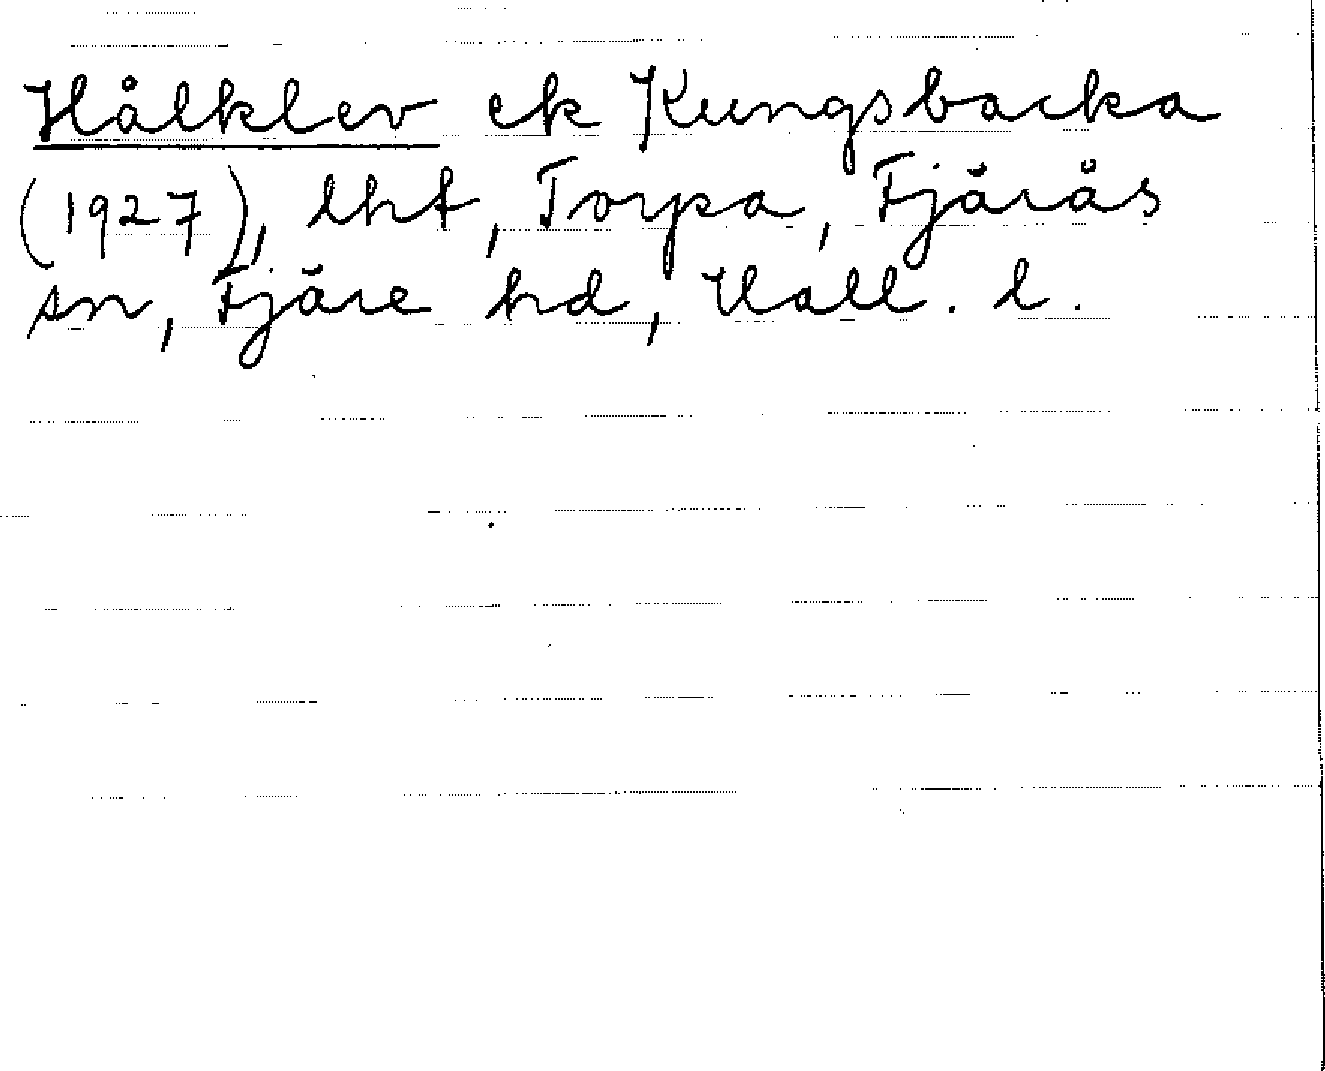 Hålklev ek Kungsbacka
(1927), lht, Torpa, Fjärås
sn, Fjäre hd, Hall. l.